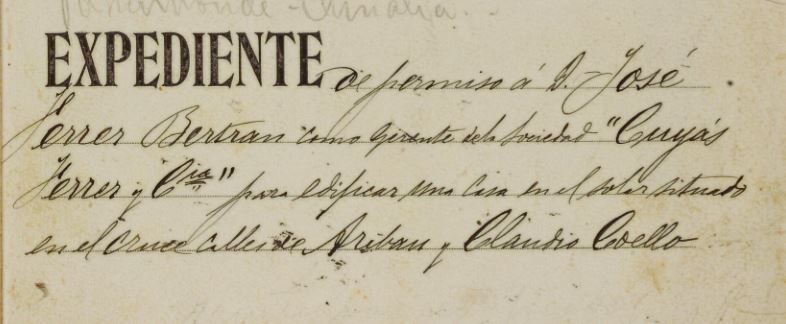 EXPEDIENTE de permiso á D. José
Ferrer Bertran como gerente de la Sociedad "Cuyás
Ferrer y Cia" para edificar una casa en el solar situado
en el cruce calles de Aribau y Claudio Coello